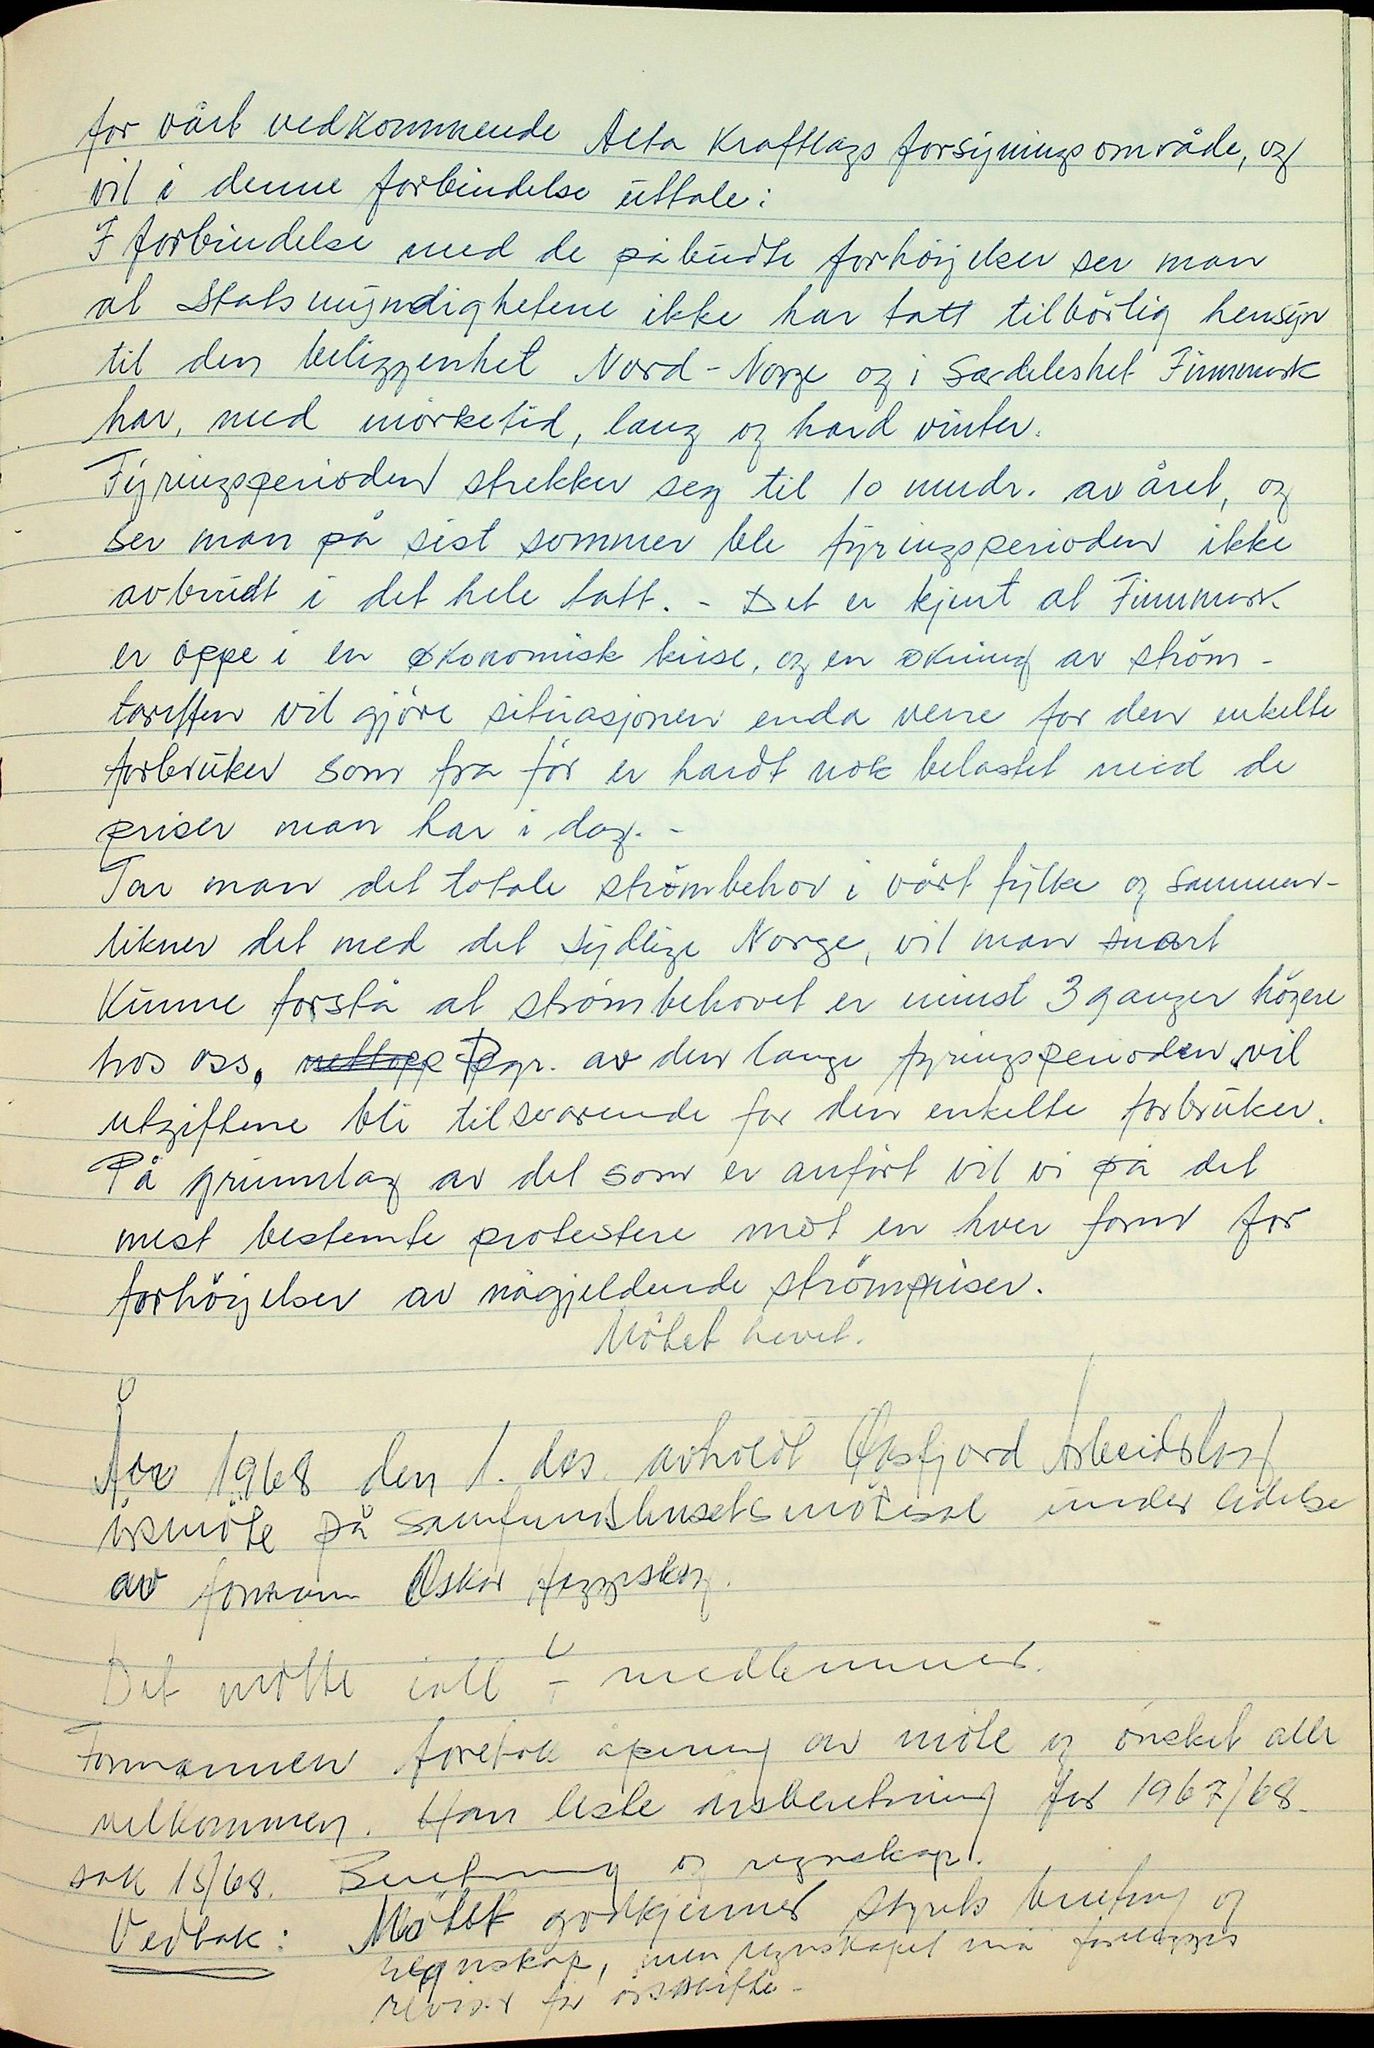 for vårt vedkommende Alta Kraftlags forsyningsområde, og
vil i denne forbindelse uttale:
I forbindelse med de påbudte forhöyelser ser man
at Statsmyndighetene ikke har tatt tilbörlig hensyn
til den beliggenhet Nord-Norge og i Særdeleshet Finnmark
har, med mörketid, lang og hard vinter.
Fyringsperioden strekker seg til 10 mndr. av året, og
ser man på sist sommer ble fyringsperioden ikke
avbrudt i det hele tatt. - Det er kjent at Finnmark
er oppe i en økonomisk krise, og en økning av ström-
tariffen vil gjöre situasjonen enda verre for den enkelte
forbruker som fra för er hardt nok belastet med de
priser man har i dag. -
Tar man det totale strömbehov i vårt fylke og sammen-
likner det med det sydlige Norge, vil man snart
kunne forstå at strömbehovet er minst 3 ganger högere
hos oss. nettopp Pgr. av den lange fyringsperioden vil
utgiftene bli tilsvarende for den enkelte forbruker.
På grunnlag av det som er anfört vil vi på det
mest bestemte protestere mot en hver form for
forhöyelser av någjeldende strömpriser.
Mötet hevet.
År 1968 den 1. des. avholdt Øksfjord Arbeidslag
årsmöte på Samfundshusets mötesal under ledelse
av formann Oskar
Det mötte ialt medlemmer.
Formannen foretok åpning av möte og önsket alle
velkommen. Han leste årsberetning for 1967/68.
sak 15/68. Beretning og regnskap.
Vedtak: Mötet godkjenner styrets beretning og
regnskap, men regnskapet må forelegges
revisor för årsskifte -